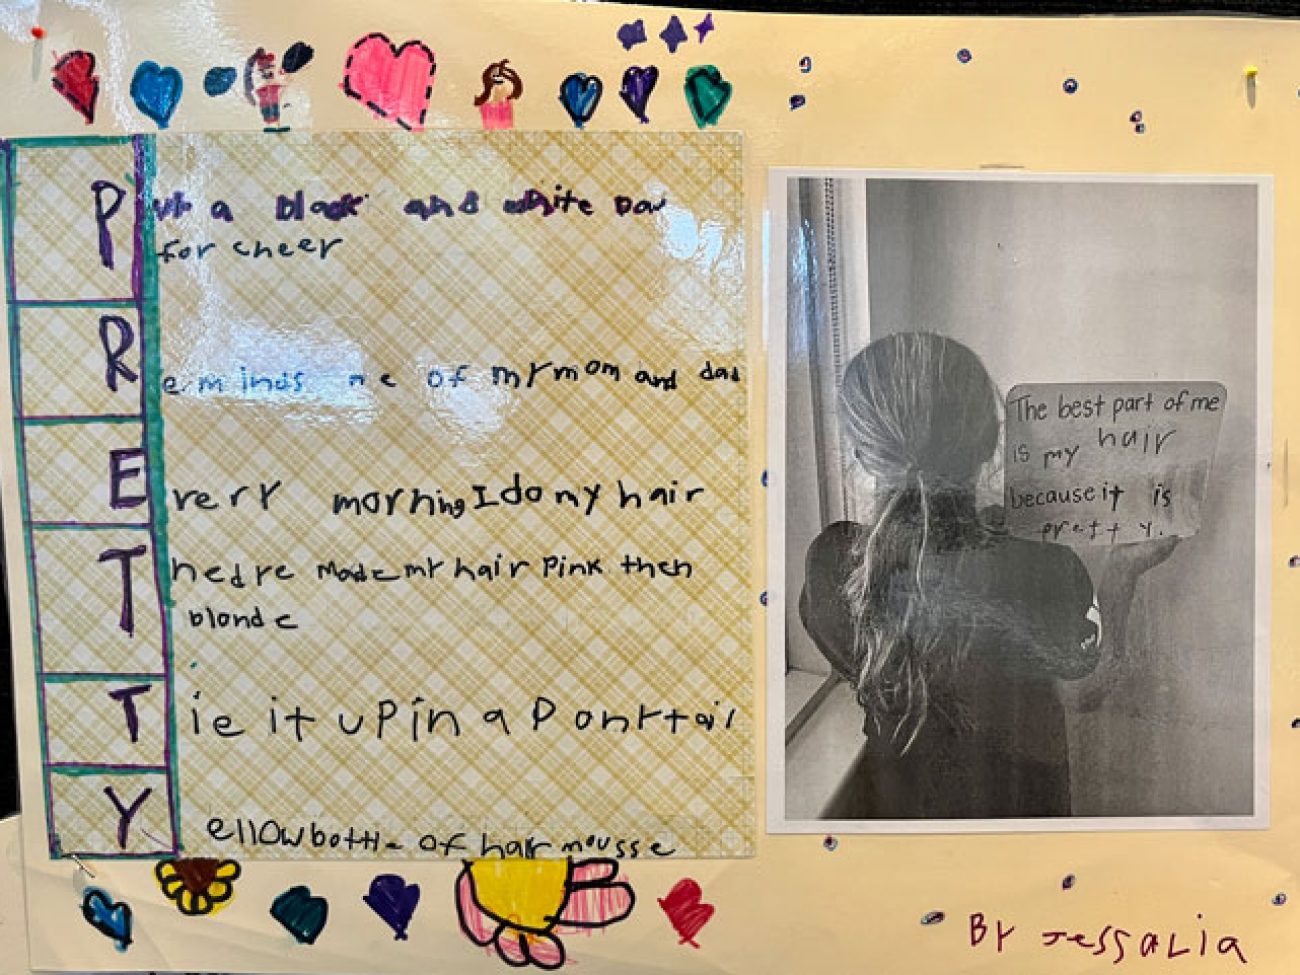 Put a black and white bow
for cheer
Reminds me of my mom and dad
Every morning I do my hair
The dye made my hair pink then
blonde
Tie it up in a ponytail
Yellow bottle of hair mousse
The best part of me
is my hair
because it is
pretty.
By Jessalia